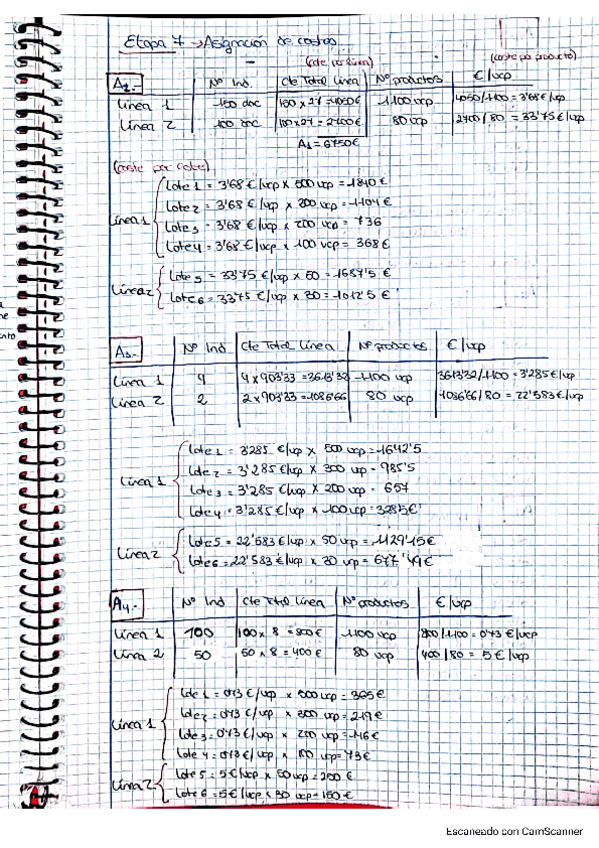 Etapa 7 → Asignación de costes
(cte por línea) (coste por producto)
A2.- Nº Ind. Cte Total Línea Nº productos €/ucp
Línea 1 150 doc 150 x 27 = 4050€ 1100 ucp 4050/1100 = 3'68 €/ucp
Línea 2 100 doc 100 x 27 = 2700€ 80 ucp 2700/80 = 33'75 €/ucp
A1 = 6750€
(coste por lotes)
Línea 1
Lote 1 = 3'68 €/ucp x 500 ucp = 1840 €
Lote 2 = 3'68 €/ucp x 300 ucp = 1104 €
Lote 3 = 3'68 €/ucp x 200 ucp = 736
Lote 4 = 3'68 €/ucp x 100 ucp = 368€
Línea 2
Lote 5 = 33'75 €/ucp x 50 = 1687'5 €
Lote 6 = 33'75 €/ucp x 30 = 1012'5 €
A3.- Nº Ind Cte Total Línea Nº productos €/ucp
Línea 1 4 4 x 903'33 = 3613'32 1100 ucp 3613'32/1100 = 3'285 €/ucp
Línea 2 2 2 x 903'33 = 1806'66 80 ucp 1806'66/80 = 22'583 €/ucp
Línea 1
Lote 1 = 3'285 €/ucp x 500 ucp = 1642'5
Lote 2 = 3'285 €/ucp x 300 ucp = 985'5
Lote 3 = 3'285 €/ucp x 200 ucp = 657
Lote 4 = 3'285 €/ucp x 100 ucp = 328'5€
Línea 2
Lote 5 = 22'583 €/ucp x 50 ucp = 1129'15 €
Lote 6 = 22'583 €/ucp x 30 ucp = 677'49 €
A4.- Nº Ind Cte Total Línea Nº productos €/ucp
Línea 1 100 100 x 8 = 800€ 1100 ucp 800/1100 = 0'73 €/ucp
Línea 2 50 50 x 8 = 400€ 80 ucp 400/80 = 5 €/ucp
Línea 1
Lote 1 = 0'73 €/ucp x 500 ucp = 365€
Lote 2 = 0'73 €/ucp x 300 ucp = 219€
Lote 3 = 0'73 €/ucp x 200 ucp = 146€
Lote 4 = 0'73€/ucp x 100 ucp = 73€
Línea 2
Lote 5 = 5€/ucp x 50 ucp = 250 €
Lote 6 = 5€/ucp x 30 ucp = 150€
Escaneado con CamScanner